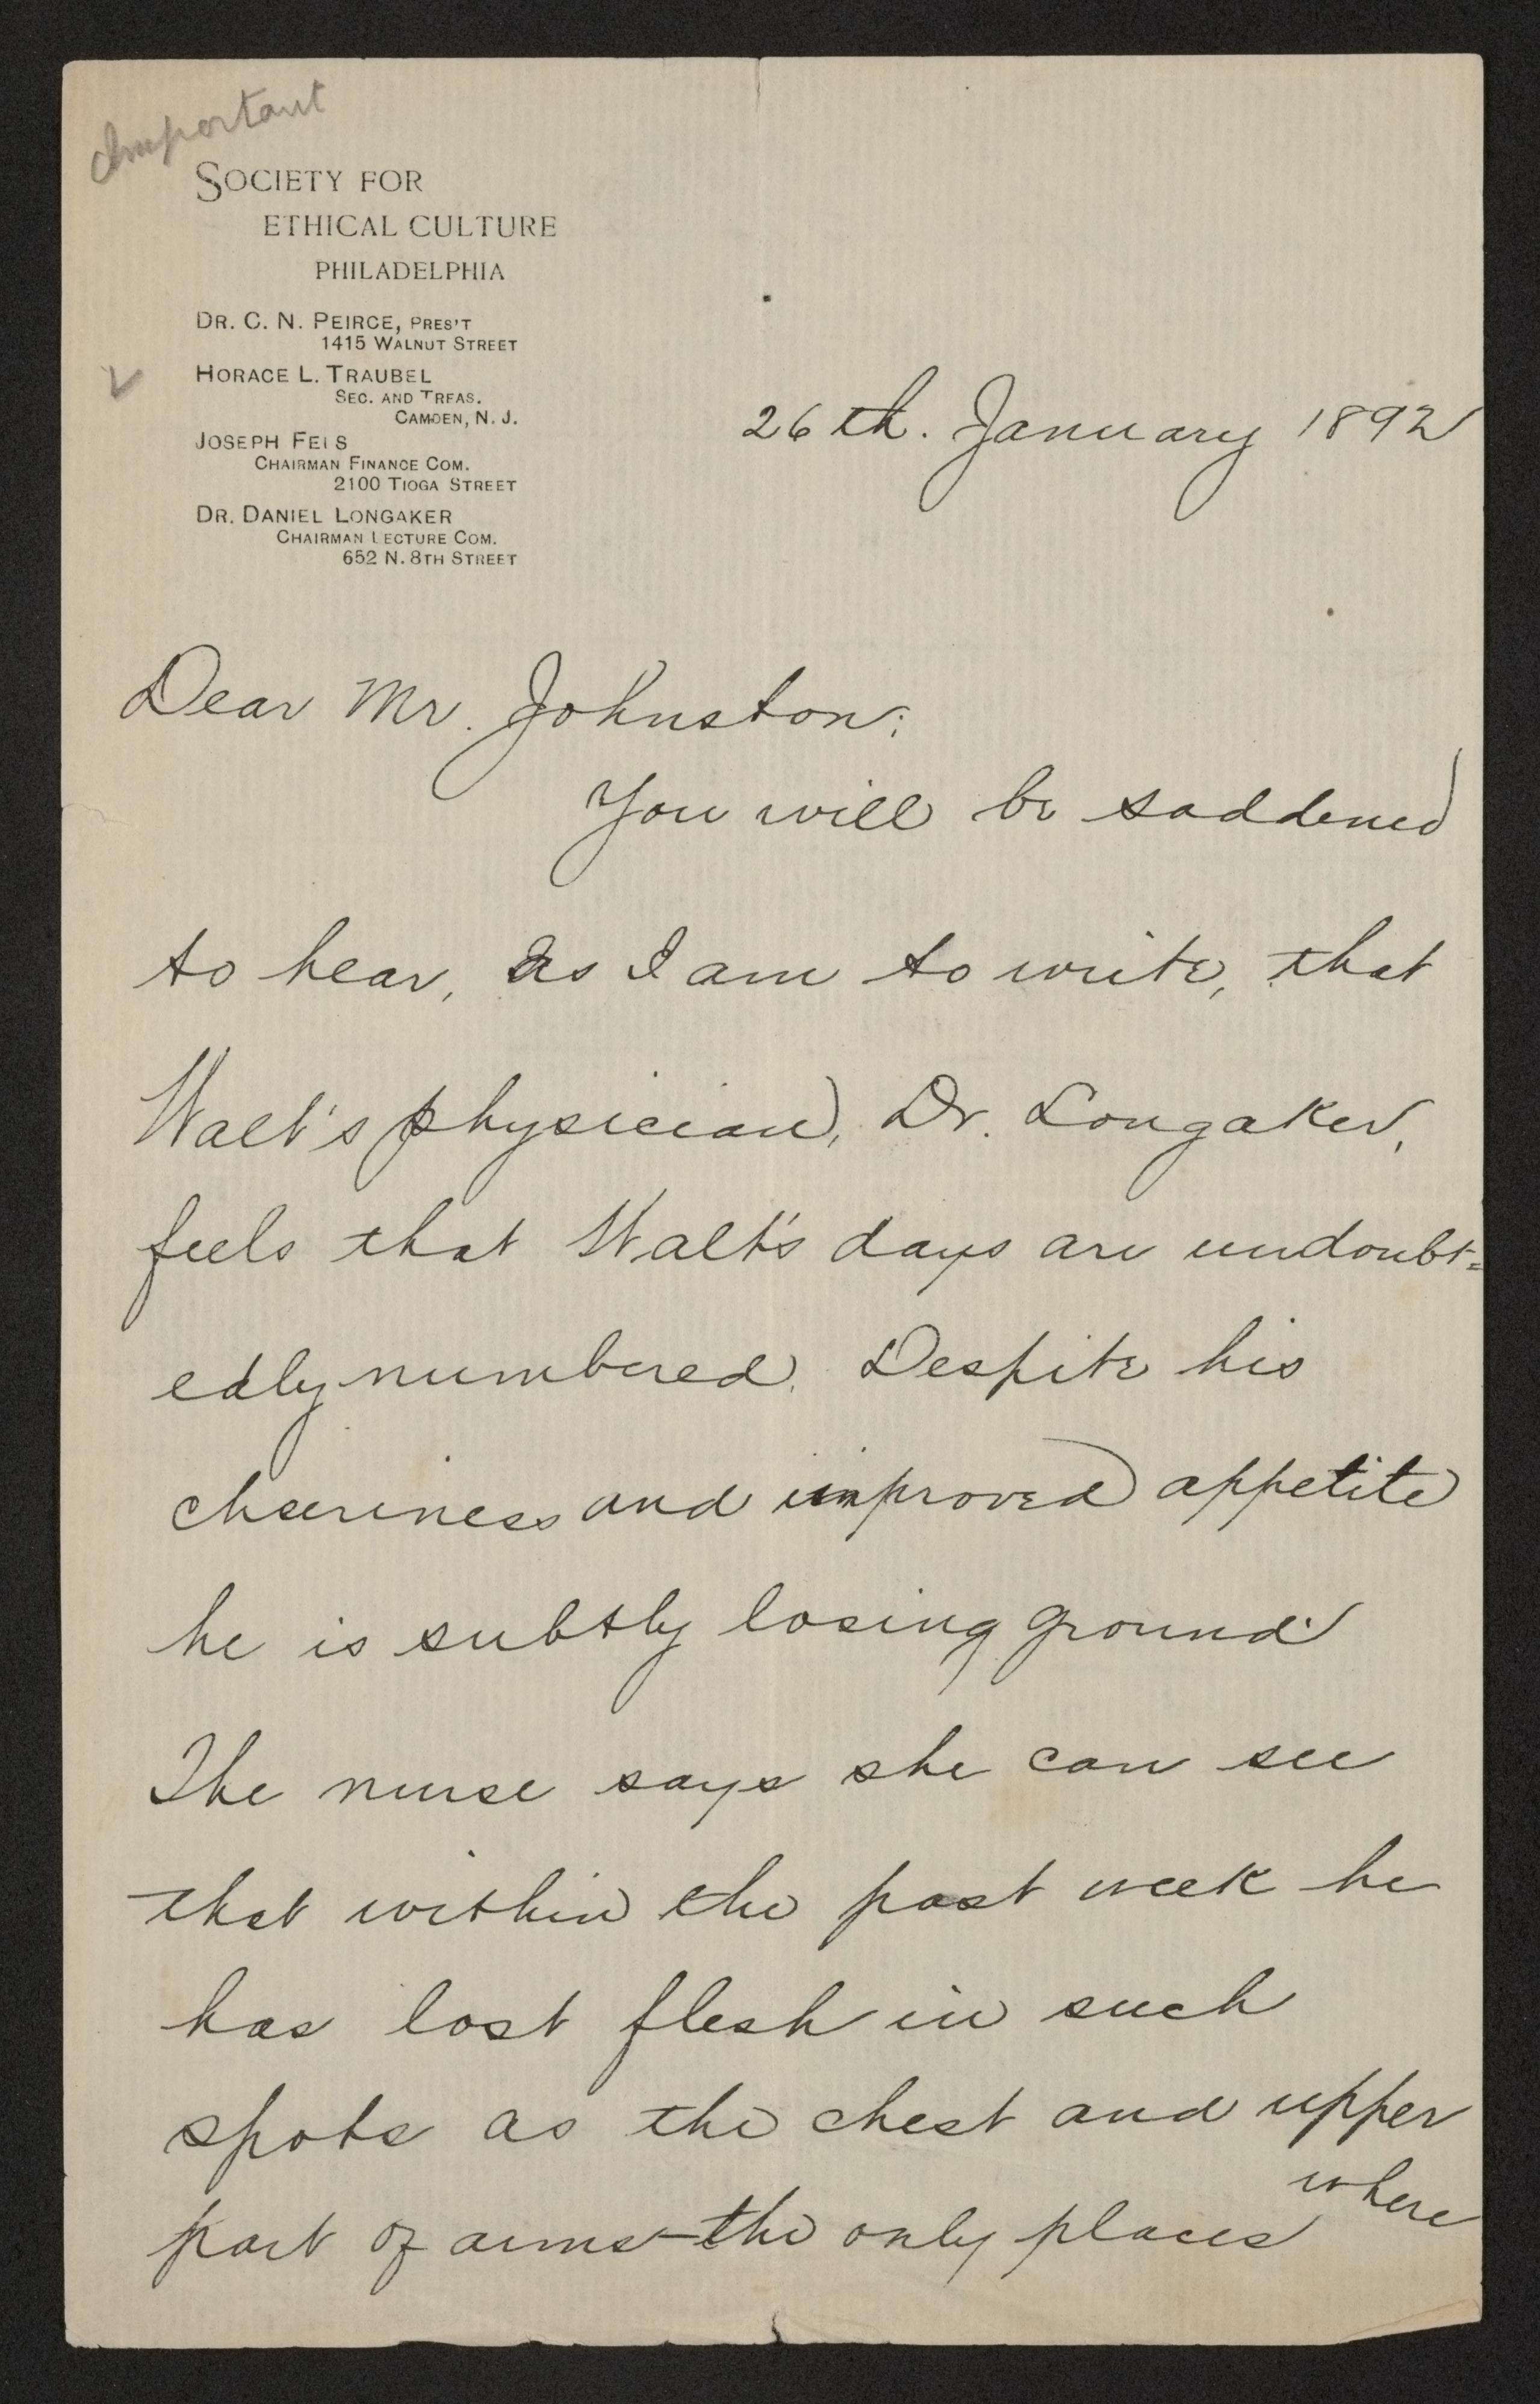 Important
SOCIETY FOR
ETHICAL CULTURE
PHILADELPHIA
DR. C. N. PEIRCE, PRES'T
1415 WALNUT STREET
HORACE L. TRAUBEL
SEC. AND TREAS.
CAMDEN, N. J.
JOSEPH FELS
CHAIRMAN FINANCE COM.
2100 TIOGA STREET
DR. DANIEL LONGAKER
CHAIRMAN LECTURE COM.
652 N. 8TH STREET
26th. January 1892
Dear Mr. Johnston:
You will be saddened
to hear, as I am to write, that
Walt's physician, Dr. Longaker,
feels that Walt's days are undoubt=
edly numbered. Despite his
cheeriness and improved appetite
he is subtly losing ground.
The nurse says she can see
that within the past week he
has lost flesh in such
spots as the chest and upper
part of arms—the only places where